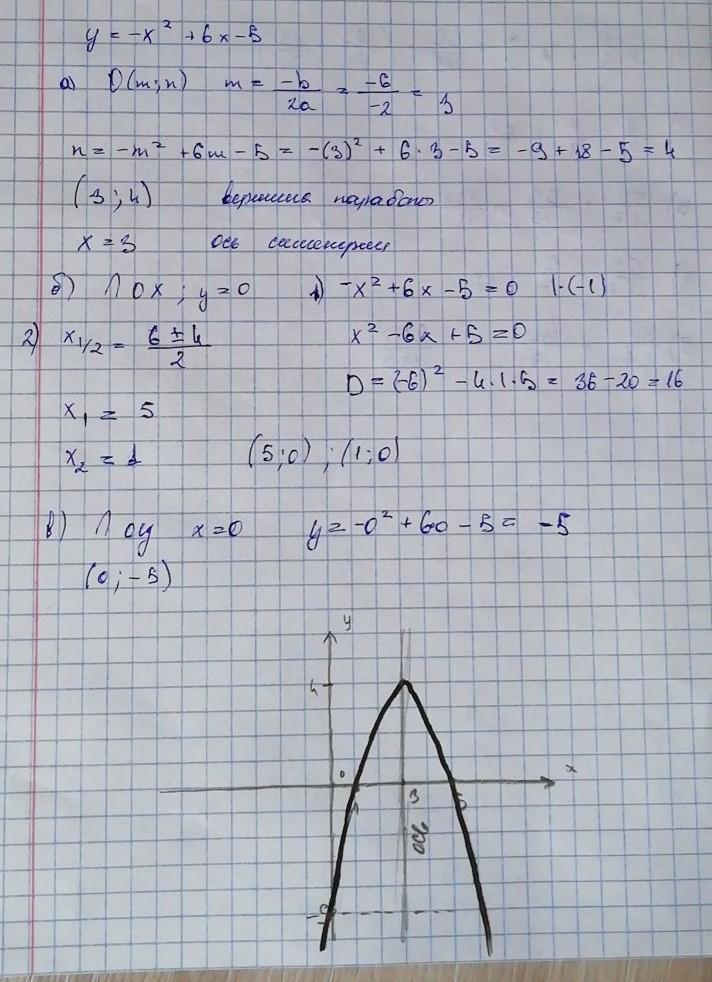 y = -x² + 6x - 5
а) O(m;n) m = -b/2a = -6/-2 = 3
n = -m² + 6m - 5 = -(3)² + 6·3 - 5 = -9 + 18 - 5 = 4
(3;4) вершина параболы
x = 3 ось симметрии
б) ∩ OX ; y = 0 1) -x² + 6x - 5 = 0 |·(-1)
x² - 6x + 5 = 0
2) x1/2 = 6 ± 4/2
D = (-6)² - 4·1·5 = 36 - 20 = 16
x₁ = 5
x₂ = 1 (5;0) ; (1;0)
в) ∩ OY x = 0 y = -0² + 60 - 5 = -5
(0;-5)
y
4
0
x
1
3
5
ось
-5